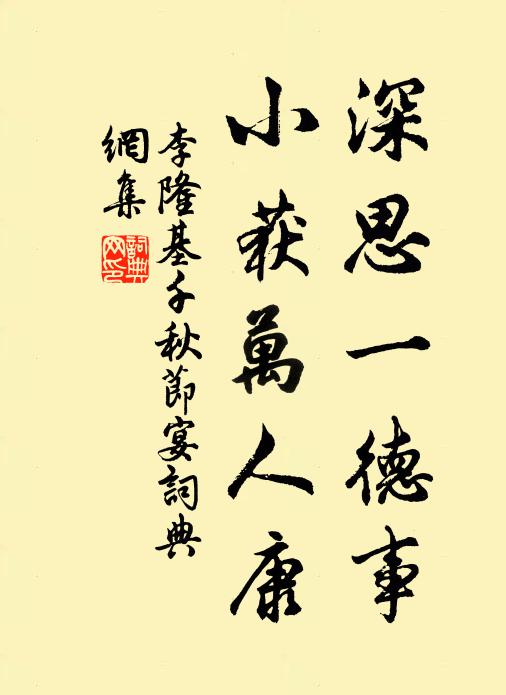 深思一德事
小获萬人康
李隆基千秋節宴詞典
網集
詞典
网印